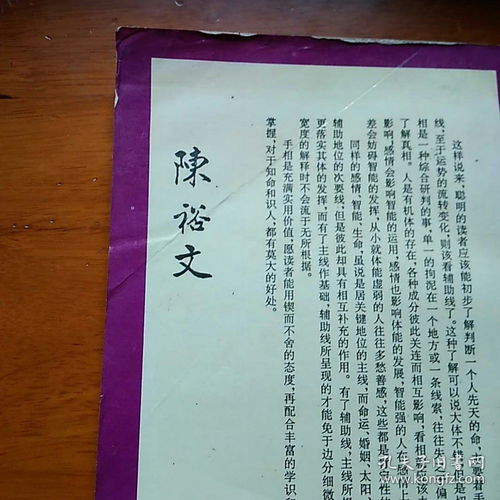 这样说来，聪明的读者应该能初步了解判断一个人先天的命，主要看
线，至于运势的流转变化，则该看辅助线了。这种了解可以说大体不错，但是
相是一种综合研判的事，单一的拘泥在一个地方或一条线索，往往失之
了解真相。人是有机体的存在，各种成分彼此关连而相互影响，看相
影响，感情会影响智能的运用，感情也影响体能的发展，智能强的人在感
差会妨碍智能的发挥，从小就体能虚弱的人往往多愁善感，这些都是
同样的感情、智能、生命，虽说是居关键地位的主线，而命运、婚姻、太阳
辅助地位的次要线，但是彼此却具有相互补充的作用。有了辅助线，主线所
更落实其体的发挥，而有了主线作基础，辅助线所呈现的才能免于边分细微
宽度的解释时不会流于无所根据。
手相是充满实用价值，愿读者能用锲而不舍的态度，再配合丰富的学识
掌握，对于知命和识人，都有莫大的好处。
陳裕文
孔夫子旧书网